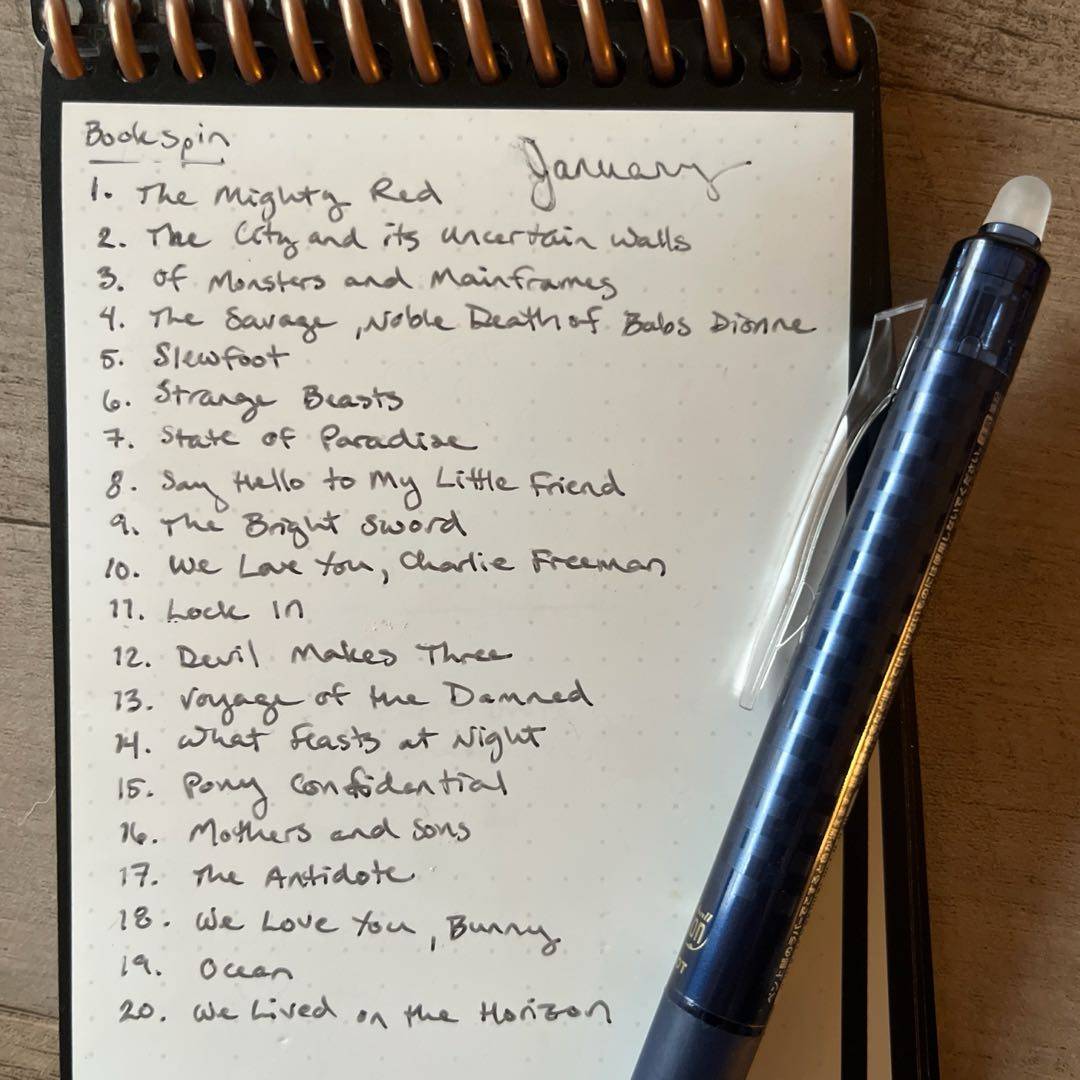 Bookspin
January
1. The Mighty Red
2. The City and its Uncertain Walls
3. Of Monsters and Mainframes
4. The Savage, Noble Death of Babs Dionne
5. Slewfoot
6. Strange Beasts
7. State of Paradise
8. Say Hello to My Little Friend
9. The Bright Sword
10. We Love You, Charlie Freeman
11. Lock In
12. Devil Makes Three
13. Voyage of the Damned
14. What Feasts at Night
15. Pony Confidential
16. Mothers and Sons
17. The Antidote
18. We Love You, Bunny
19. Ocean
20. We Lived on the Horizon